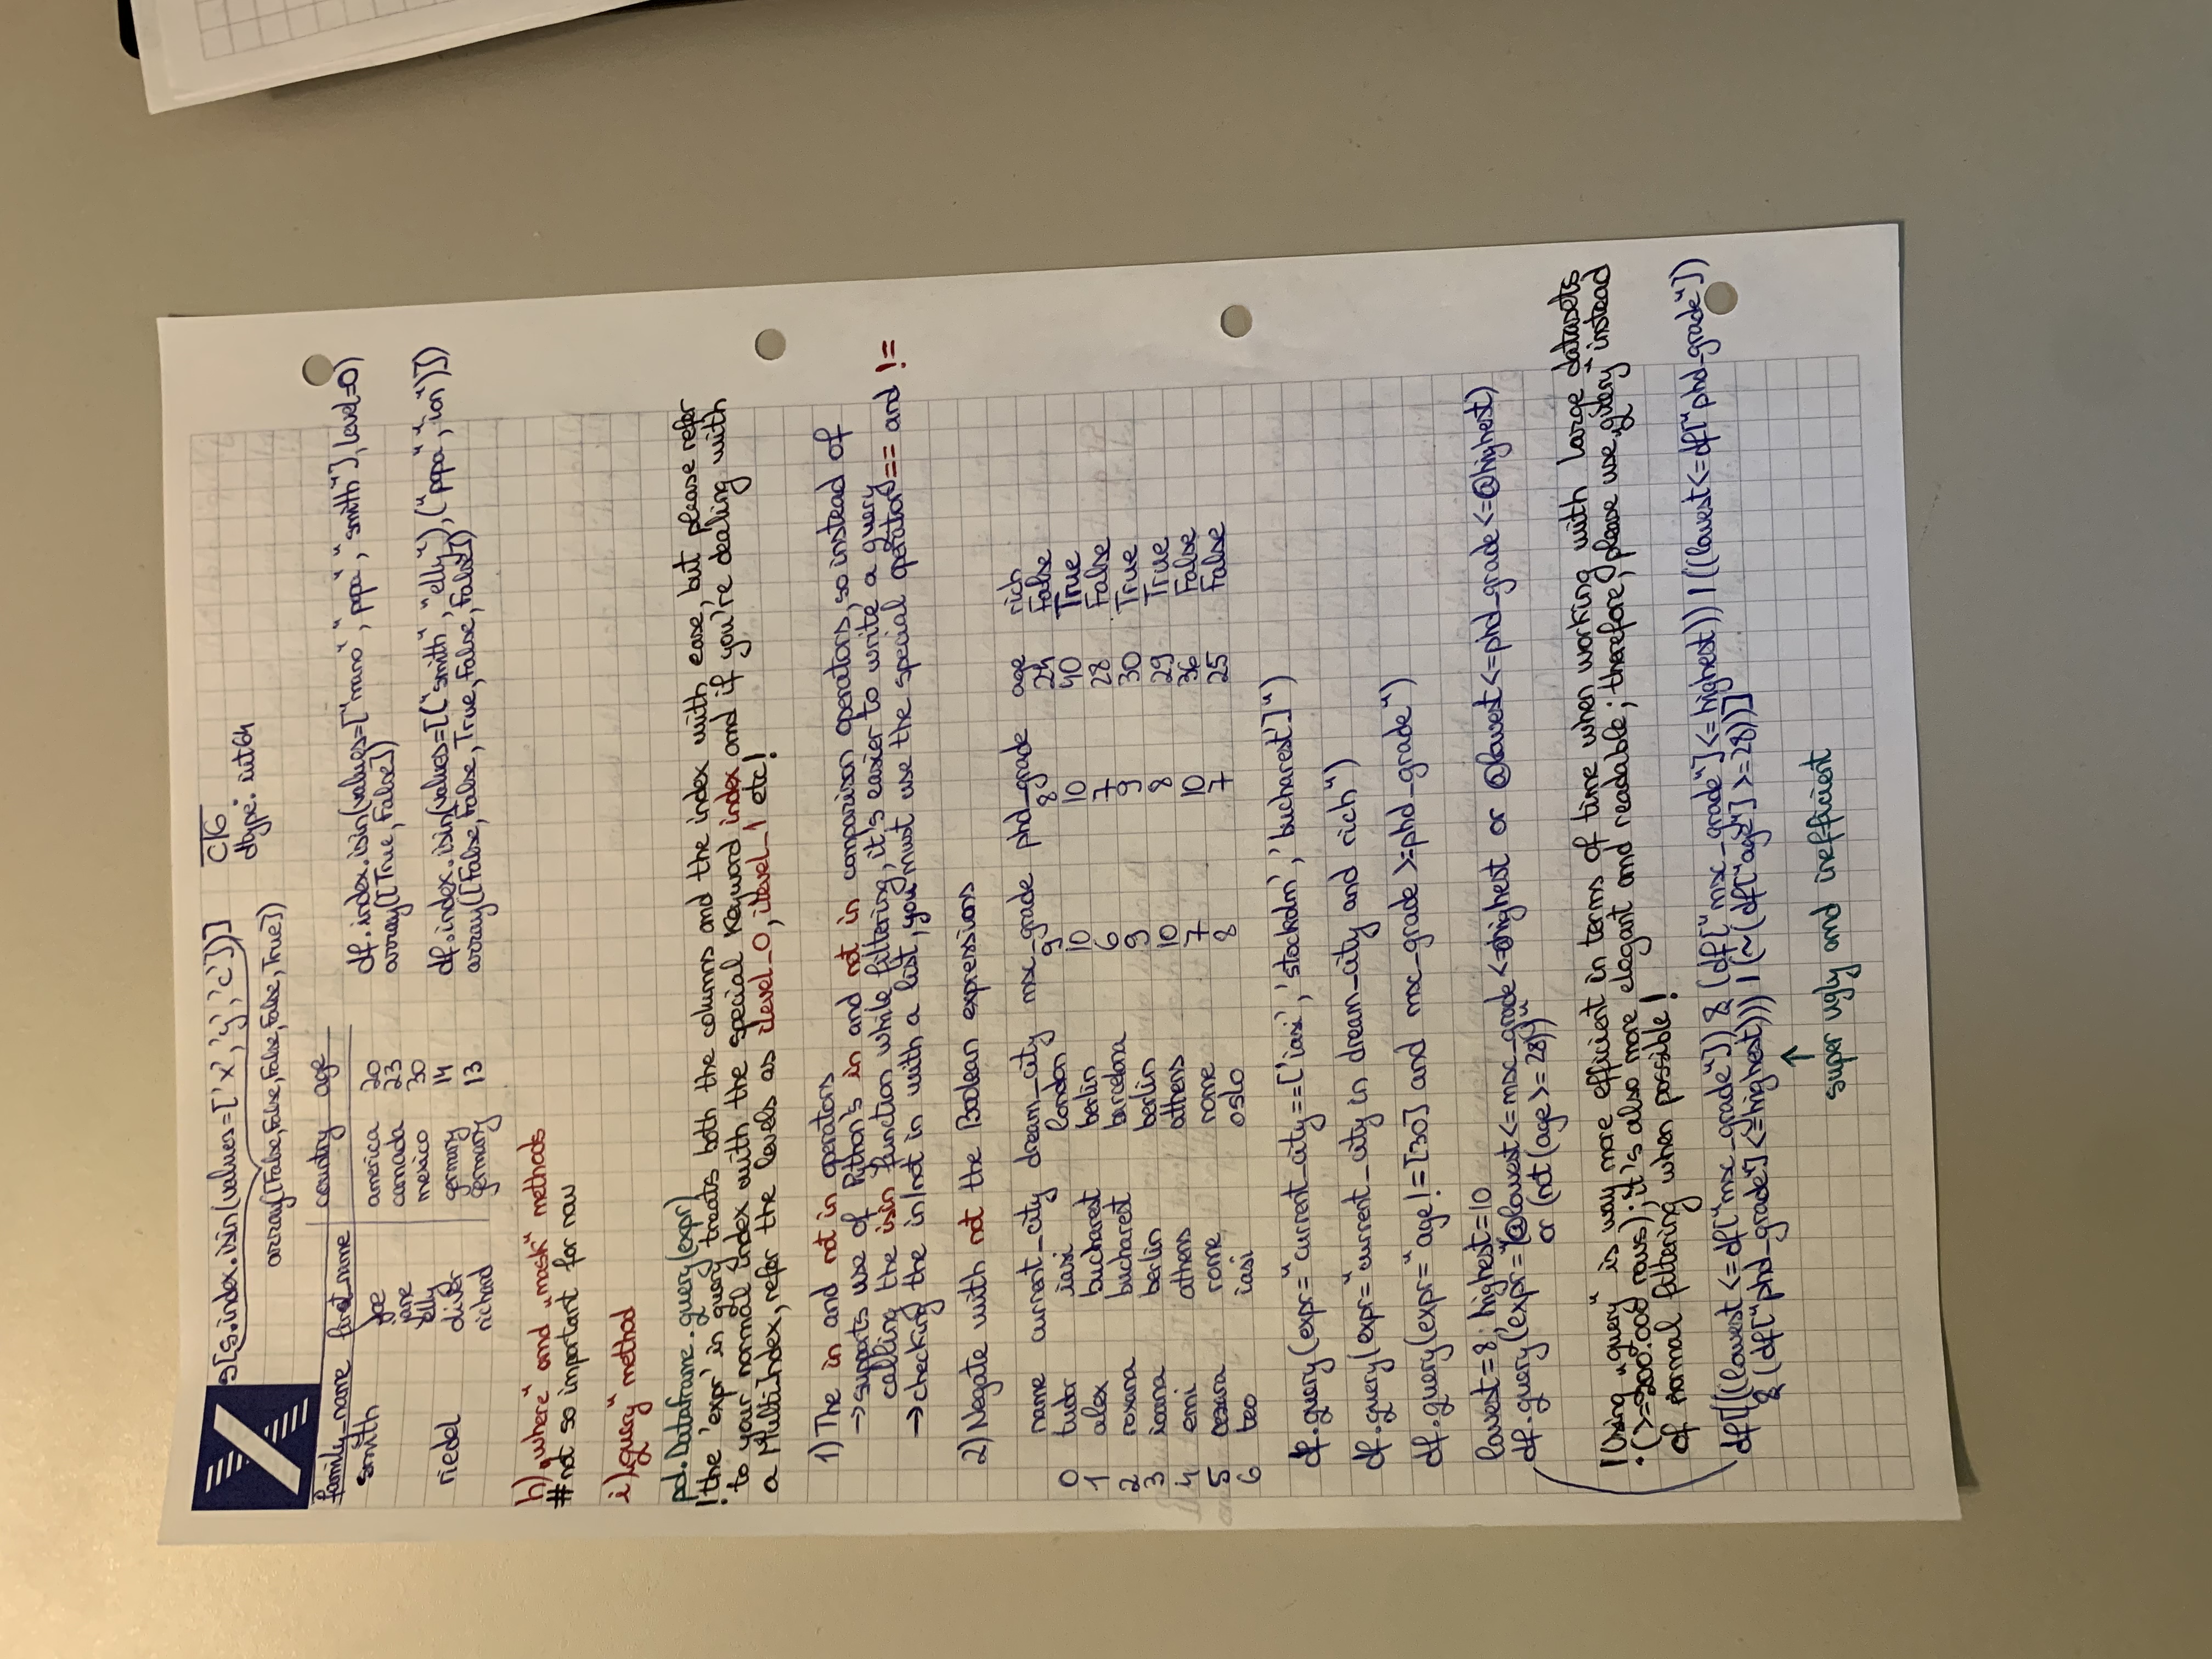 s[s.index.isin(values=['x','y','c'])] C|6
array([False,False,False,False,True]) dtype: int64
family_name first_name country age
smith joe america 20 df.index.isin(values=["nano","popa","smith"],level=0)
jane canada 23 array([True,False])
elly mexico 30
riedel oliver germany 14 df.index.isin(values=[("smith","elly"),("popa","ion")])
richard germany 13 array([False,False,True,False,False])
h) "where" and "mask" methods
# not so important for now
i) "query" method
pd.Dataframe.query(expr)
! the 'expr' in query treats both the columns and the index with ease, but please refer
to your normal index with the special keyword index and if you're dealing with
a MultiIndex, refer the levels as ilevel_0, ilevel_1 etc!
1) The in and not in operators
→ supports use of Python's in and not in comparison operators, so instead of
calling the isin function while filtering, it's easier to write a query
→ checking the in/not in with a list, you must use the special operators == and !=
2) Negate with not the Boolean expressions
name current_city dream_city msc_grade phd_grade age rich
0 tudor iasi london 9 8 24 False
1 alex bucharest berlin 10 10 40 True
2 roxana bucharest barcelona 6 7 28 False
3 ioana berlin berlin 9 9 30 True
4 emi athens athens 10 8 29 True
5 oana rome rome 7 10 36 False
6 teo iasi oslo 8 7 25 False
df.query(expr="current_city==['iasi','stockolm','bucharest']")
df.query(expr="current_city in dream_city and rich")
df.query(expr="age!=[30] and msc_grade >=phd_grade")
lowest=8; highest=10
df.query(expr="(@lowest<=msc_grade<=@highest or @lowest<=phd_grade<=@highest)
or (not(age>=28))"
! Using "query" is way more efficient in terms of time when working with large datasets
(>=200.000 rows); it's also more elegant and readable; therefore, please use "query" instead
of normal filtering when possible!
df[(((lowest<=df["msc_grade"]) & (df["msc_grade"]<=highest)) | ((lowest<=df["phd_grade"])
& (df["phd_grade"]<=highest))) | (~(df["age"]>=28))]
↑
super ugly and inefficient